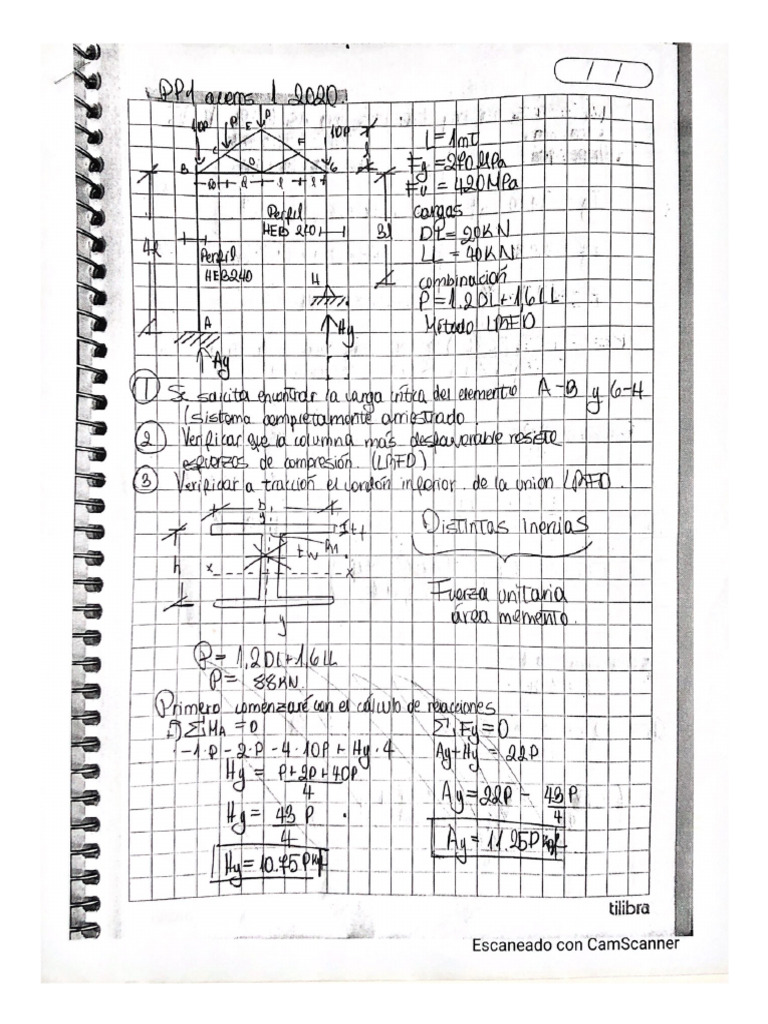 PP1 aceros 1 2020.
11
10P P E P 10P
B C D F G
L = 1mt
Fy = 270 MPa
Fu = 420MPa
cargas
DL = 20KN
LL = 40KN
combinación
P = 1.2DL + 1,6LL
Método LRFD
Perfil
HEB 240
3l
4l
Perfil
HEB240
H
A
Hy
Ay
1 Se solicita encontrar la carga crítica del elemento A-B y G-H
(sistema completamente arriostrado.
2 Verificar que la columna más desfavorable resiste
esfuerzos de compresión. (LRFD)
3 Verificar a tracción el cordón inferior. de la union LRFD.
b
y
tf
tw
h
x x
y
Distintas inercias
Fuerza unitaria
área memento.
P = 1,2DL+1,6LL
P = 88KN.
Primero comenzaré con el cálculo de reacciones
1) ΣMA = 0
-1·P - 2·P - 4·10P + Hy·4
Hy = P+2P+40P
4
Hy = 43 P
4
Hy = 10.75P Kgf
ΣFy = 0
Ay+Hy = 22P
Ay = 22P - 43P
4
Ay = 11.25P Kgf
tilibra
Escaneado con CamScanner